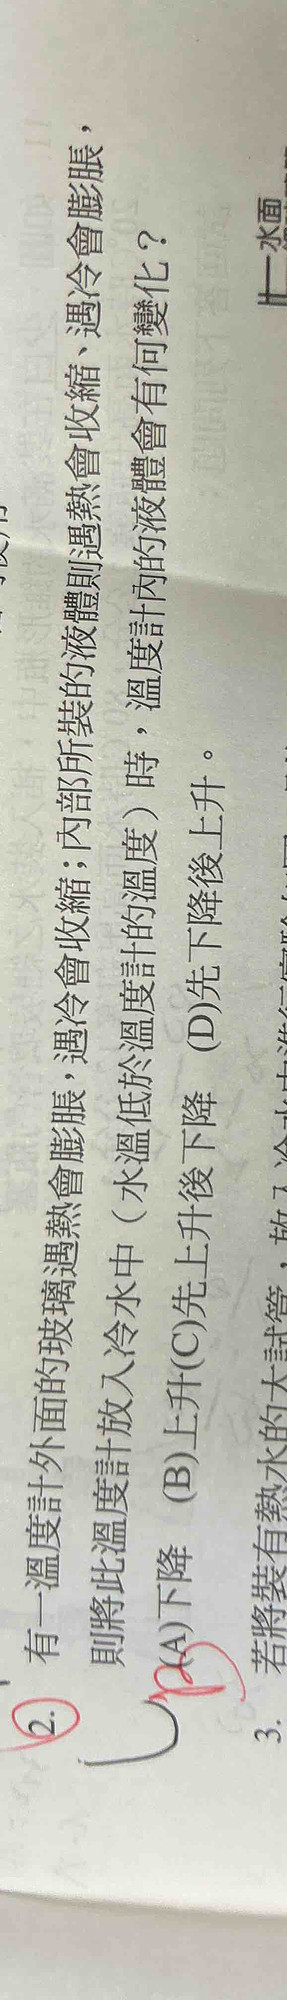 2. 有一溫度計外面的玻璃遇熱會膨脹，遇冷會收縮；內部所裝的液體則遇熱會收縮、遇冷會膨脹，
則將此溫度計放入冷水中（水溫低於溫度計的溫度）時，溫度計內的液體會有何變化？
(A)下降 (B)上升(C)先上升後下降 (D)先下降後上升。
水面
3. 若將裝有熱水的大試管，放入冷水中進行實驗